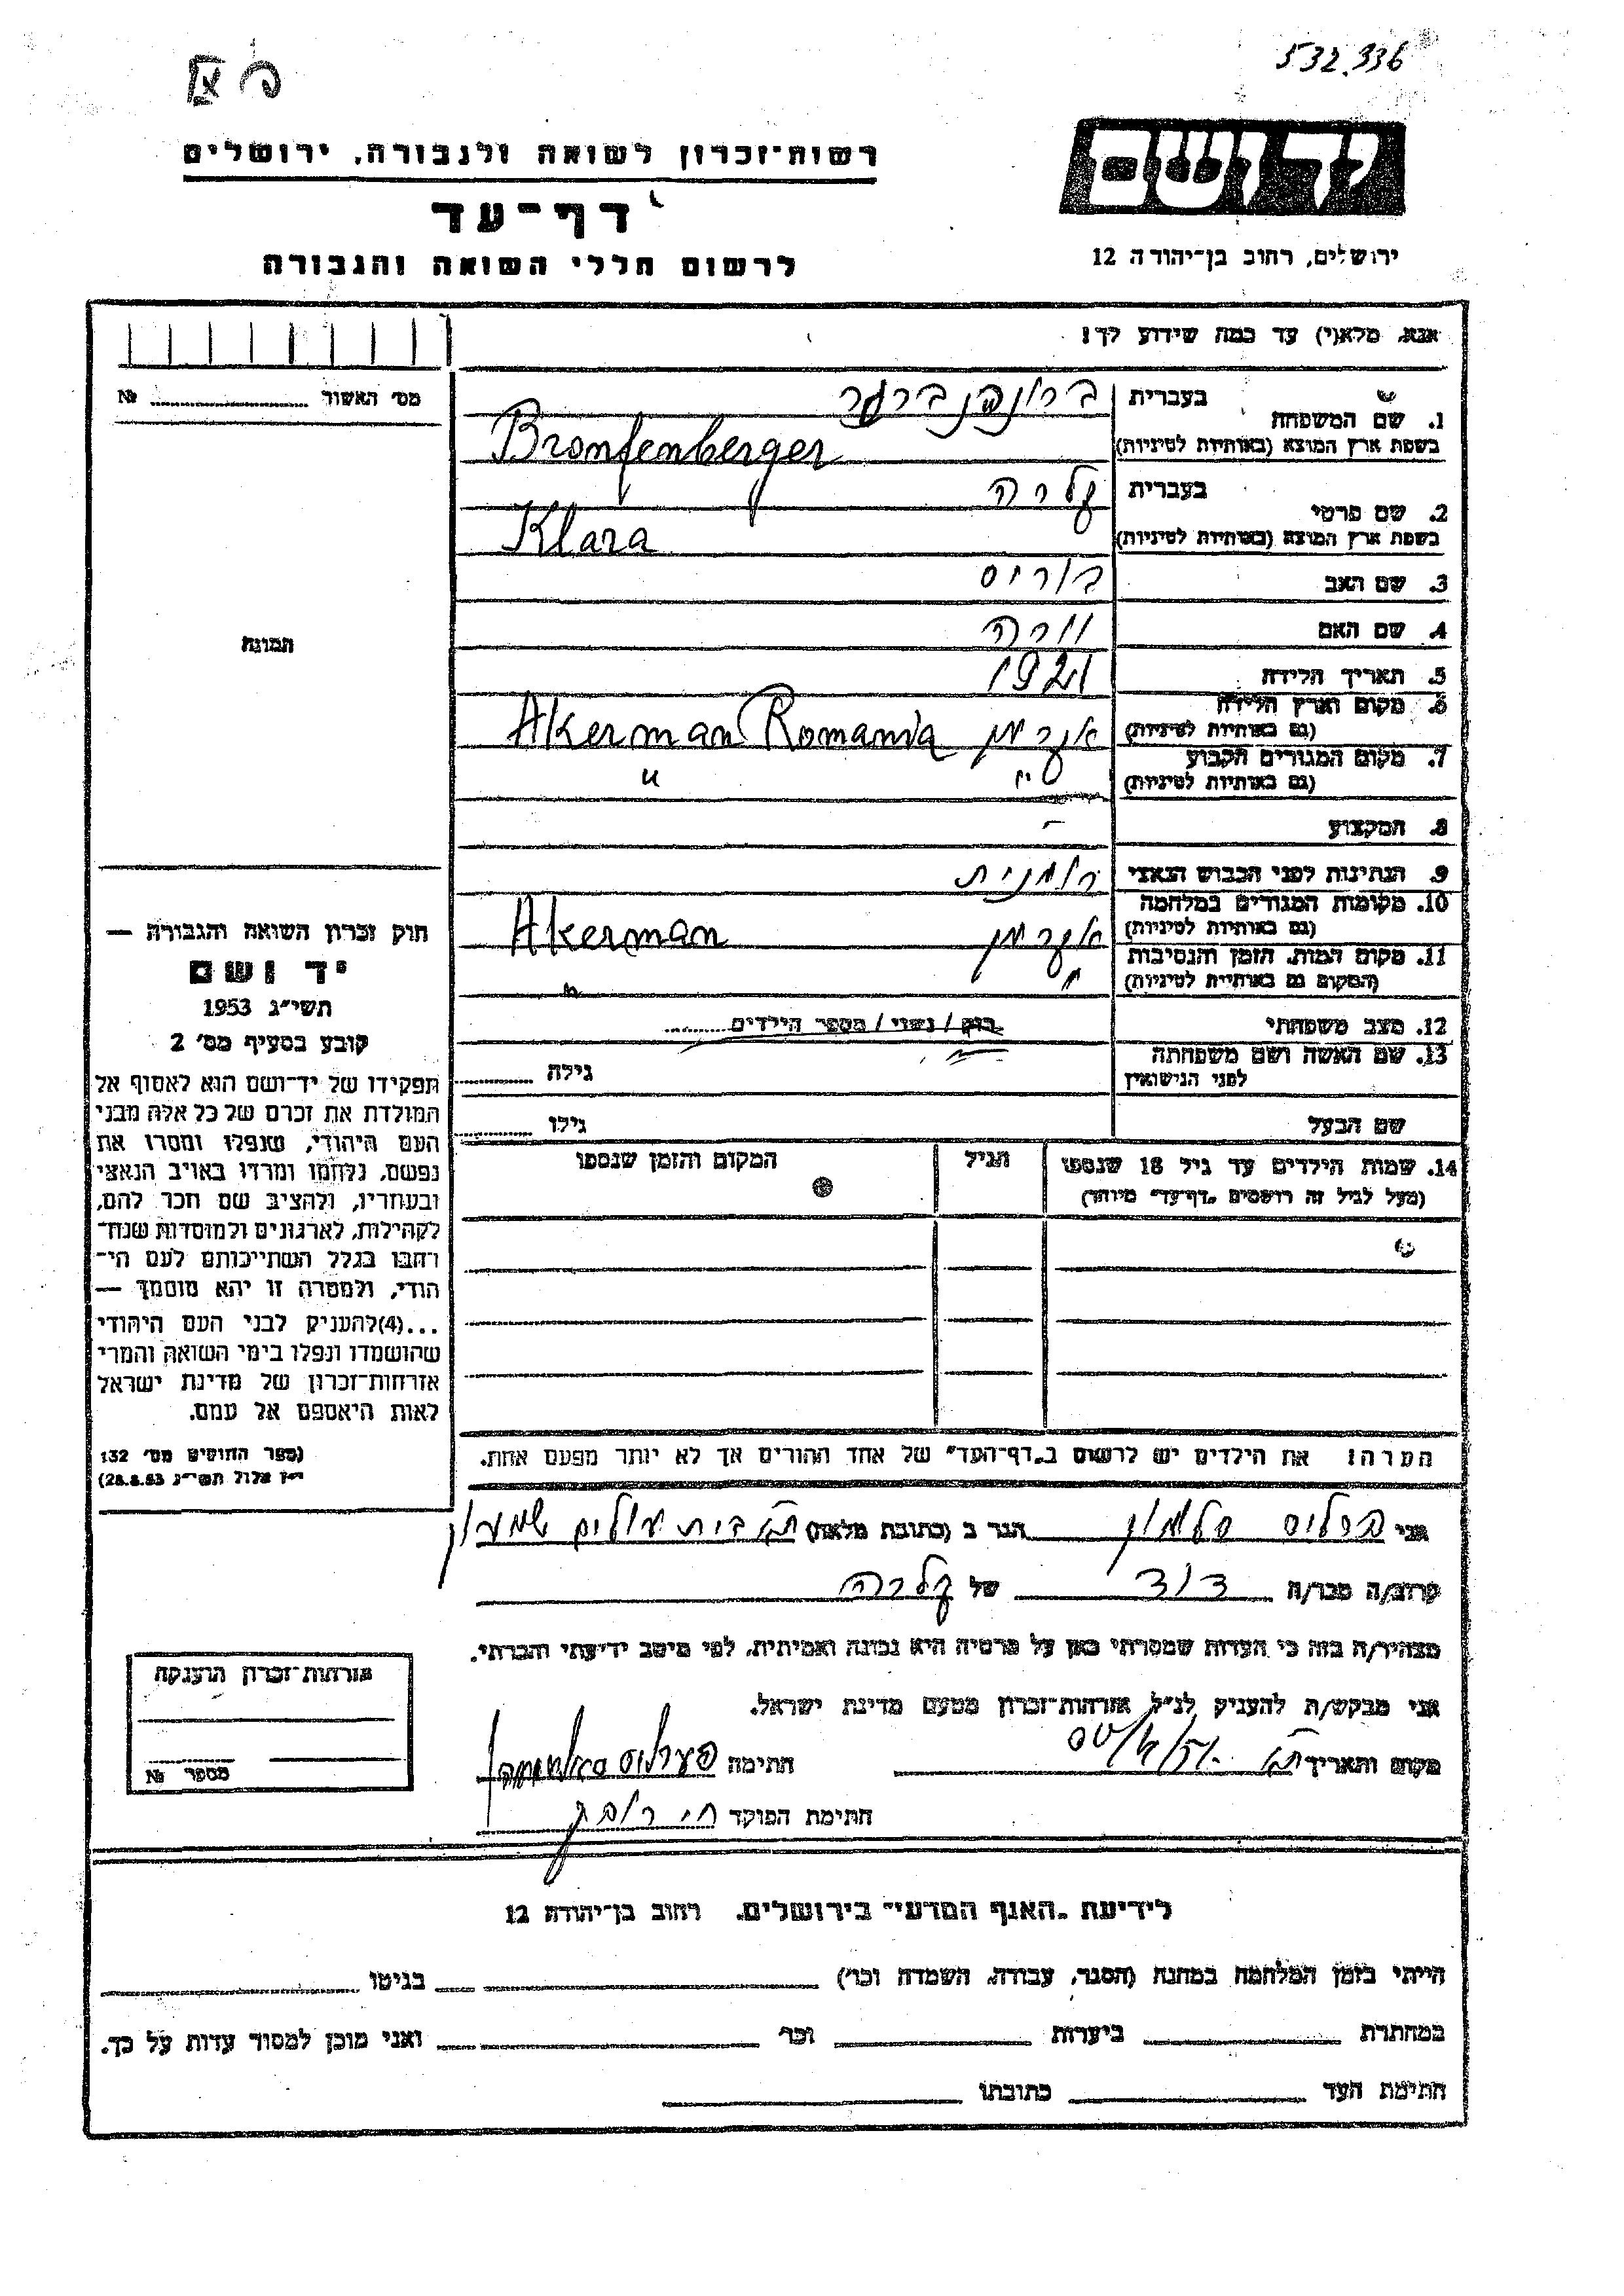 532.336
רשות־זכרון לשואה ולגבורה, ירושלים
יד ושם
דף־עד
ירושלים, רחוב בן־יהודה 12
לרשום חללי השואה והגבורה
אנא, מלא(י) עד כמה שידוע לך!
מס׳ האשור ........ №
1. שם המשפחה
בעברית ברונפנברגר
בשפת ארץ המוצא (באותיות לטיניות) Bronfenberger
2. שם פרטי
בעברית קלרה
בשפת ארץ המוצא (באותיות לטיניות) Klara
3. שם האב בוריס
4. שם האם וורה
5. תאריך הלידה 1921
6. מקום וארץ הלידה אקרמן Akerman Romania
(גם באותיות לטיניות)
7. מקום המגורים הקבוע " "
(גם באותיות לטיניות)
8. המקצוע -
9. הנתינות לפני הכבוש הנאצי רומנית
10. מקומות המגורים במלחמה אקרמן Akerman
(גם באותיות לטיניות)
11. מקום המות, הזמן והנסיבות " "
(המקום גם באותיות לטיניות)
12. מצב משפחתי רוק / נשוי / מספר הילדים........
13. שם האשה ושם משפחתה גילה ........
לפני הנישואין
שם הבעל גילו ........
14. שמות הילדים עד גיל 18 שנספו הגיל המקום והזמן שנספו
(מעל לגיל זה רושמים „דף־עד״ מיוחד)
הערה! את הילדים יש לרשום ב„דף־העד״ של אחד ההורים אך לא יותר מפעם אחת.
תמונה
חוק זכרון השואה והגבורה —
יד ושם
תשי״ג 1953
קובע בסעיף מס׳ 2
תפקידו של יד־ושם הוא לאסוף אל
המולדת את זכרם של כל אלה מבני
העם היהודי, שנפלו ומסרו את
נפשם, נלחמו ומרדו באויב הנאצי
ובעוזריו, ולהציב שם וזכר להם,
לקהילות, לארגונים ולמוסדות שנח־
רהבו בגלל השתייכותם לעם הי־
הודי, ולמטרה זו יהא מוסמך —
...(4)להעניק לבני העם היהודי
שהושמדו ונפלו בימי השואה והמרי
אזרחות־זכרון של מדינת ישראל
לאות היאספם אל עמם.
(ספר החוקים מס׳ 132
י״ז אלול תשי״ג 28.8.53)
אני פרליס סלומון הגר ב (כתובת מלאה) בית עולים שמעון
קרוב/ה מכר/ה דוד של קלרה
מצהיר/ה בזה כי העדות שמסרתי כאן על פרטיה היא נכונה ואמיתית, לפי מיטב ידיעתי והכרתי.
אני מבקש/ת להעניק לנ״ל אזרחות־זכרון מטעם מדינת ישראל.
מקום ותאריך חתימה
חתימת הפוקד
אזרחות־זכרון הוענקה
מספר №
לידיעת „האגף המדעי״ בירושלים, רחוב בן־יהודה 12
הייתי בזמן המלחמה במחנה (הסגר, עבודה, השמדה וכו׳) בגיטו
במחתרת ביערות וכו׳ ואני מוכן למסור עדות על כך.
חתימת העד כתובתו